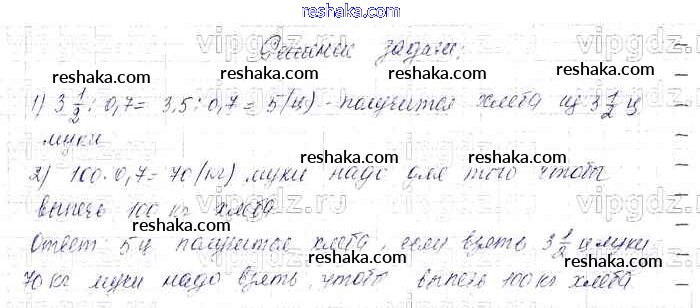 reshaka.com
Решение задачи:
reshaka.com reshaka.com reshaka.com
1) 3 1/2 : 0,7 = 3,5 : 0,7 = 5 (ц) - получится хлеба из 3 1/2 ц
муки
reshaka.com reshaka.com reshaka.com
2) 100 · 0,7 = 70 (кг) муки надо для того чтобы
выпечь 100 кг хлеба
reshaka.com reshaka.com reshaka.com
Ответ: 5 ц получится хлеба, если взять 3 1/2 ц муки
70 кг муки надо взять, чтобы выпечь 100 кг хлеба
reshaka.com reshaka.com reshaka.com
vipgdz vipgdz.com vipgdz.com